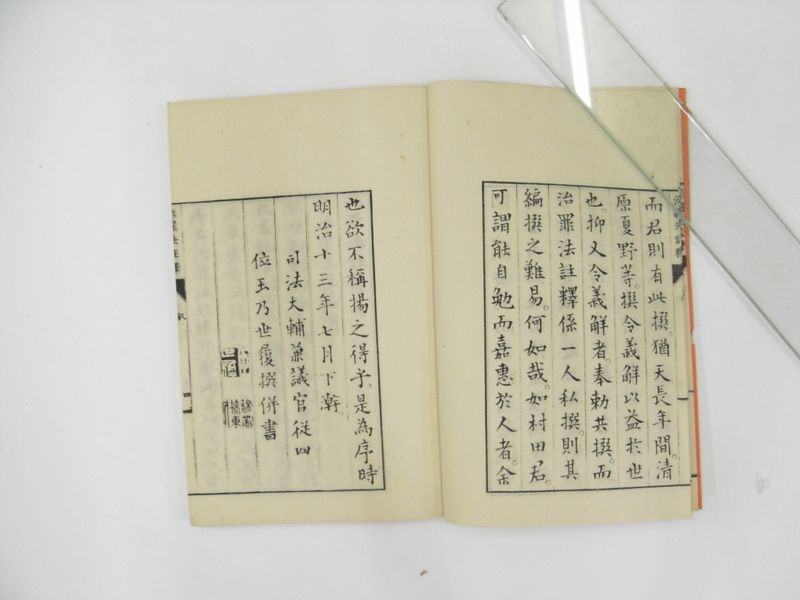 而君則有此撰。猶天長年間。清
原夏野等。撰令義解以益於世
也。抑又令義解者。奉勅共撰。而
治罪法註釋係一人私撰。則其
編撰之難易。何如哉。如村田君。
可謂能自勉而嘉惠於人者。余
也欲不稱揚之得乎。是為序時
明治十三年七月下澣
司法大輔兼議官従四
位玉乃世履撰併書